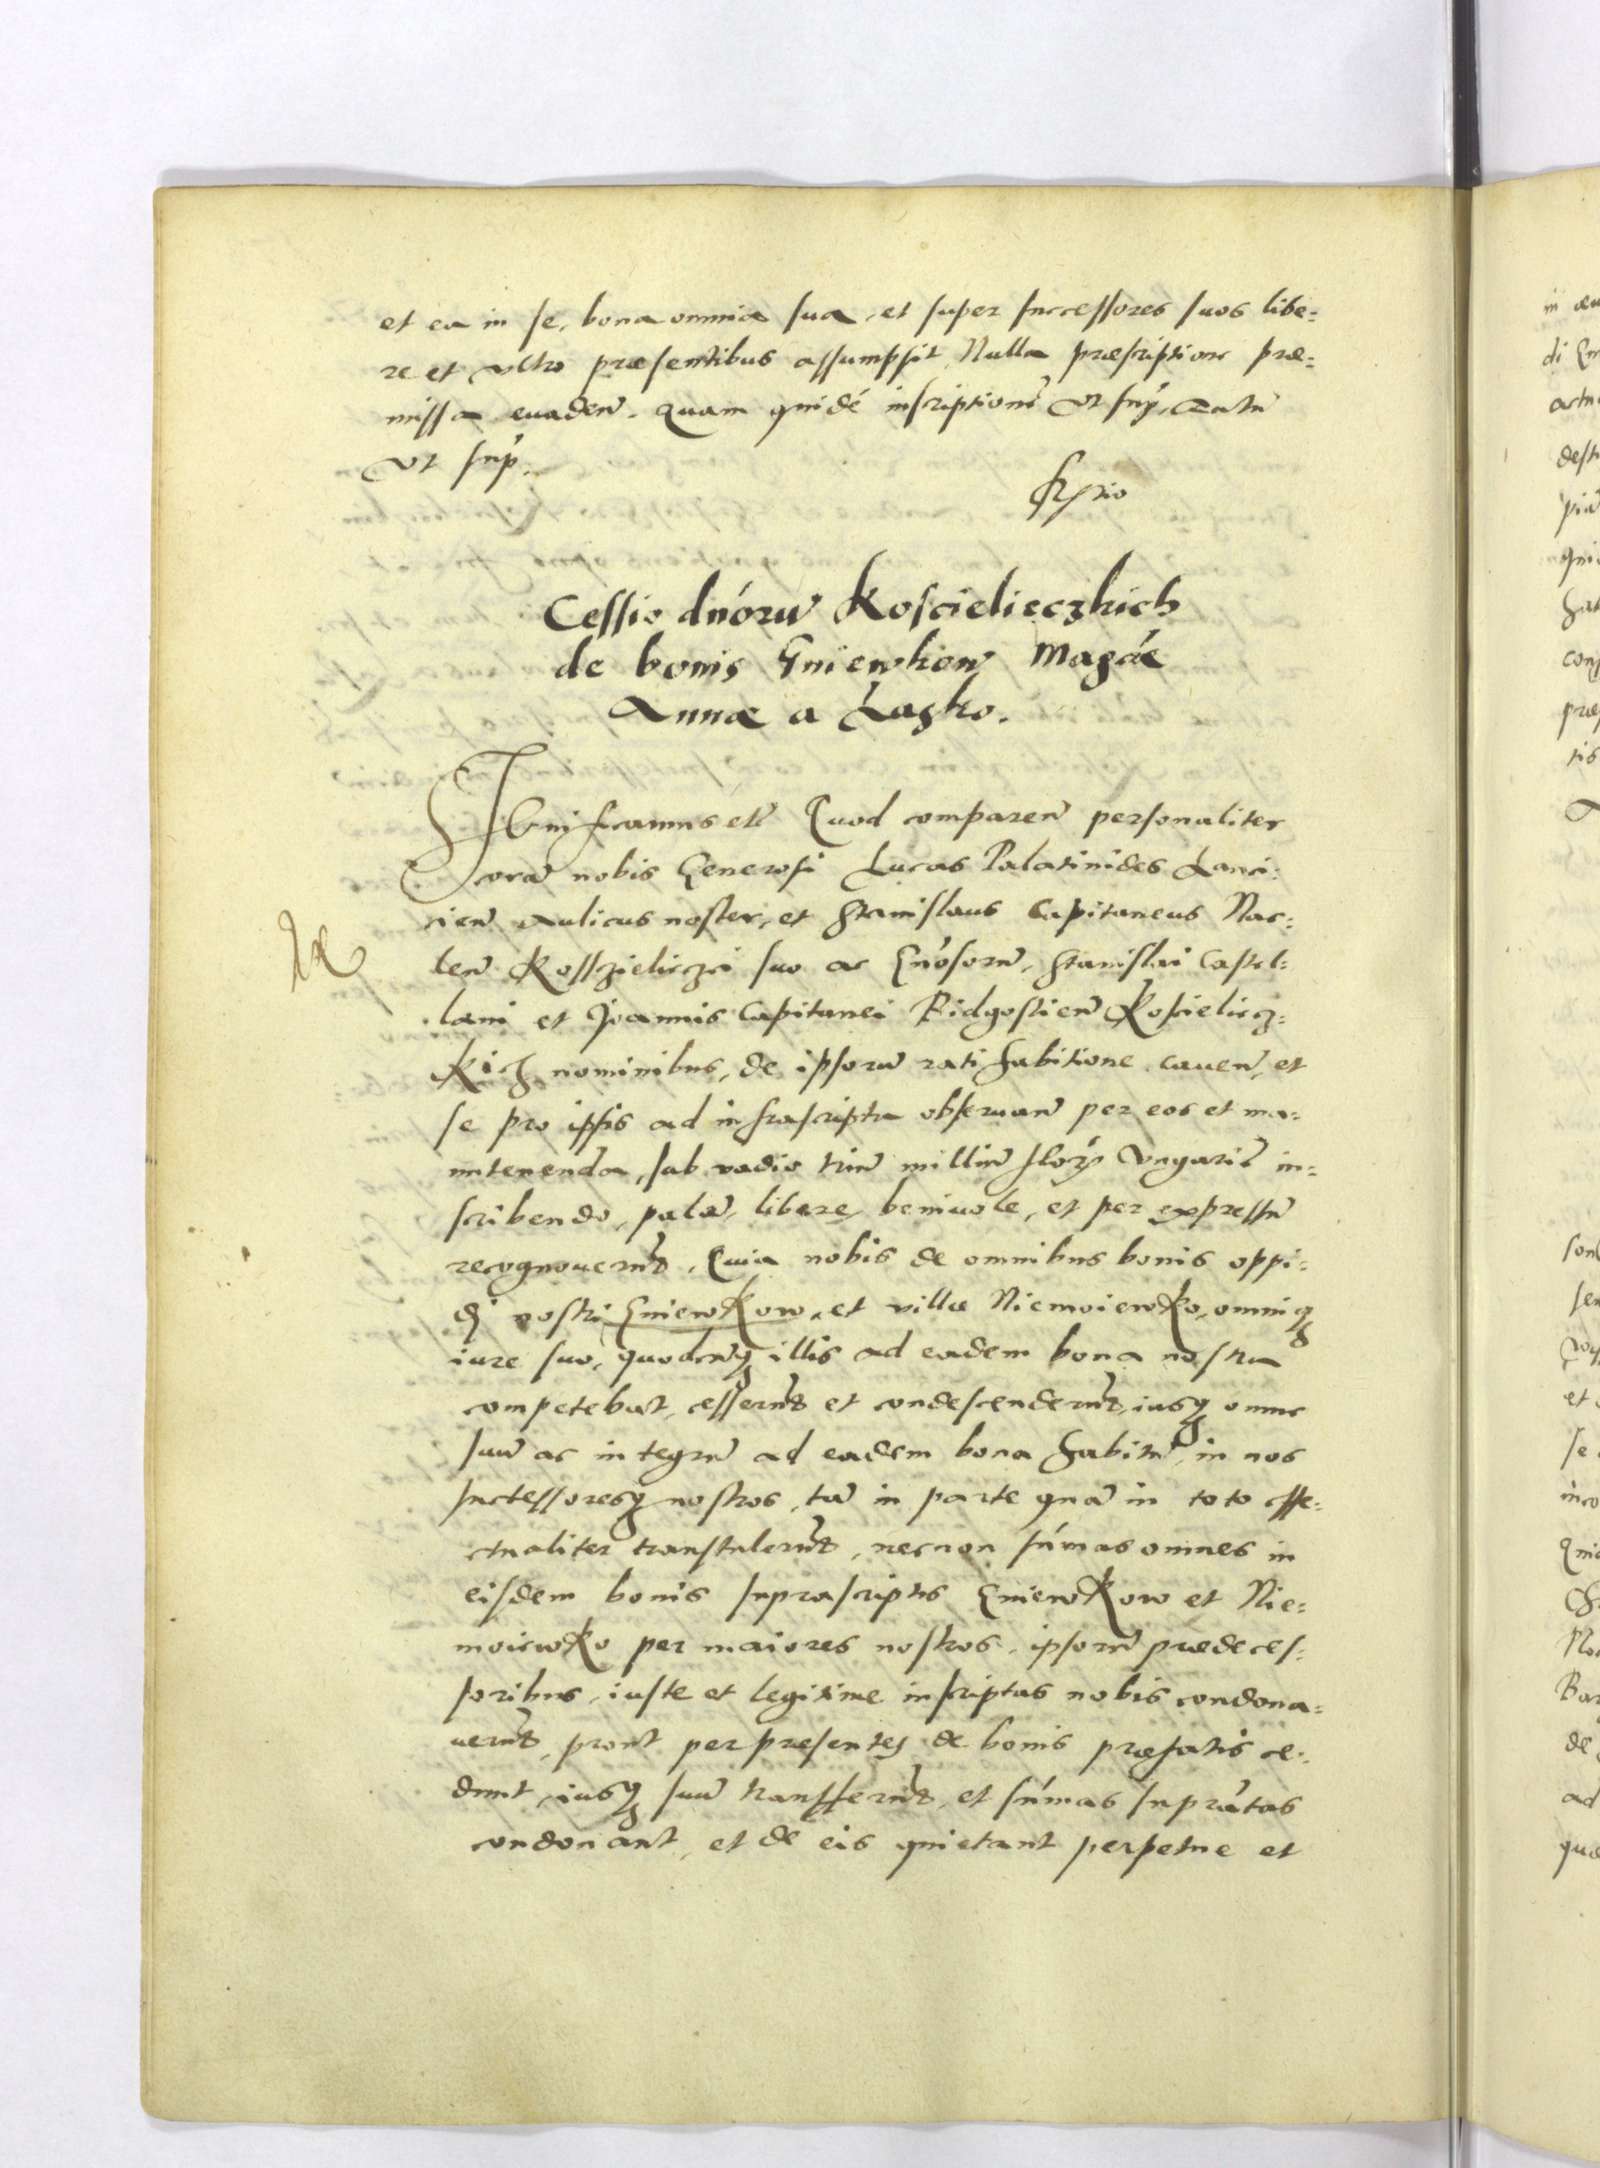 et ea in se, bona omnia sua, et super successores suos libe=
re et ultro præsentibus assumpsit, Nulla præscriptione præ=
missa evaden̄. Quam quidē inscriptionē ut sup̄. Actū
ut sup̄.
Cessio dn̄orū Koscielieczkich
de bonis Gniewkow Magcæ
Annæ a Lasko.
Significamus etc̄ Quod comparen̄ personaliter
corā nobis Generosi Lucas Palatinides Lanci=
cien̄ Aulicus noster, et Stanislaus Capitaneus Nac=
len̄ Kosszieliczci suo ac Gn̄osorū, Stanislai Castel=
lani et Joannis Capitanei Bidgostien̄ Koscielicz=
Kich nominibus, de ipsorū ratihabitione caven̄, et
se pro ipsis ad infrascripta observan̄ per eos et ma=
nutenenda, sub vadio triū milliū flor̄ Ungaric̄ in=
scribendo, palā, libere, benivole, et per expressū
recognoverūt, Quia nobis de omnibus bonis oppi=
di nostri GniewKow, et villæ NiemoiewKo, omniq̨
iure suo, quodcūq̨ illis ad eadem bona nostra
competebat, cesserūt et condescenderūt, iusq̨ omne
suū ac integrū ad eadem bona habitū, in nos
successoresq̨ nostros, tā in parte quā in toto effe=
ctualiter transtulerūt, necnon sūmas omnes in
eisdem bonis suprascriptis GniewKow et Nie=
moiewKo per maiores nostros, ipsorū prædeces=
soribus, iuste et legitime inscriptas nobis condona=
verūt, prout per præsentes de bonis præfatis ce=
dunt, iusq̨ suū transferūt, et sūmas suprātas
condonant, et de eis quietant perpetue et